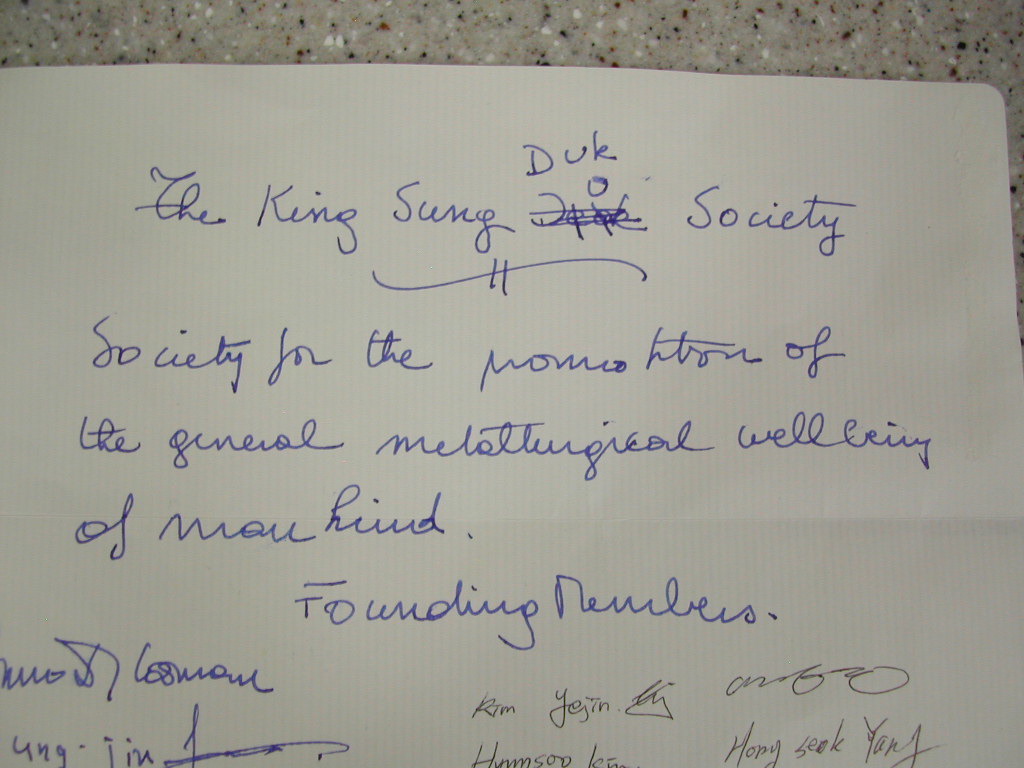 Duk
The King Sung Society
Society for the promotion of
the general metallurgical wellbeing
of mankind.
Founding Members.
Kim Yejin
ung-jin
Hyunsoo Kim
Hong seok Yang